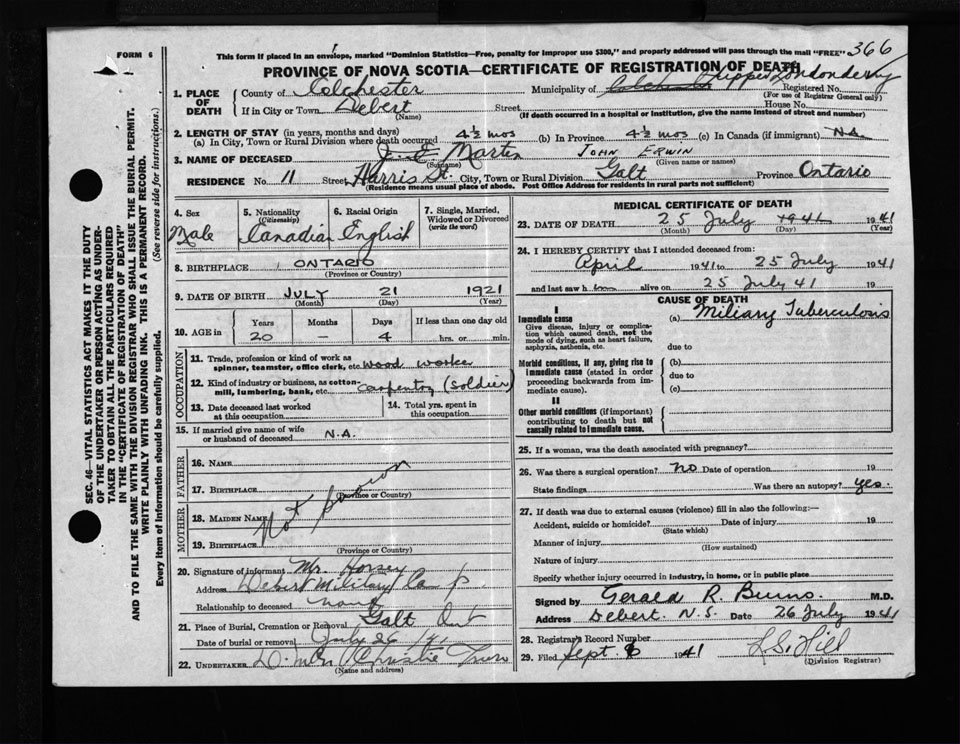 FORM 6
This form if placed in an envelope, marked "Dominion Statistics—Free, penalty for improper use $300," and properly addressed will pass through the mail "FREE"
366
PROVINCE OF NOVA SCOTIA—CERTIFICATE OF REGISTRATION OF DEATH
1. PLACE OF DEATH
County of Colchester
Municipality of Colchester Upper Londonderry
Registered No.
(For use of Registrar General only)
If in City or Town Debert
(Name)
Street
House No.
(If death occurred in a hospital or institution, give the name instead of street and number)
2. LENGTH OF STAY (in years, months and days)
(a) In City, Town or Rural Division where death occurred 4½ mos (b) In Province 4½ mos (c) In Canada (if immigrant) N.A.
3. NAME OF DECEASED J. E. Martin JOHN ERWIN
(Surname) (Given name or names)
RESIDENCE No. 11 Street Harris St. City, Town or Rural Division Galt Province Ontario
(Residence means usual place of abode. Post Office Address for residents in rural parts not sufficient)
4. Sex
Male
5. Nationality
(Citizenship)
Canadian
6. Racial Origin
English
7. Single, Married, Widowed or Divorced
(write the word)
8. BIRTHPLACE ONTARIO
(Province or Country)
9. DATE OF BIRTH JULY 21 1921
(Month) (Day) (Year)
10. AGE in
Years Months Days If less than one day old
20 — 4 hrs. or min.
OCCUPATION
11. Trade, profession or kind of work as spinner, teamster, office clerk, etc. wood worker
12. Kind of industry or business, as cotton-mill, lumbering, bank, etc. Carpentry (soldier)
13. Date deceased last worked at this occupation
14. Total yrs. spent in this occupation
15. If married give name of wife or husband of deceased N.A.
FATHER
16. NAME
17. BIRTHPLACE
(Province or Country)
Not known
MOTHER
18. MAIDEN NAME
19. BIRTHPLACE
(Province or Country)
20. Signature of informant Mr. Horsey
Address Debert Military Camp
Relationship to deceased none
21. Place of Burial, Cremation or Removal Galt Ont
Date of burial or removal July 26/41
22. UNDERTAKER Christie Truro
(Name and address)
MEDICAL CERTIFICATE OF DEATH
23. DATE OF DEATH 25 July 1941 1941
(Month) (Day) (Year)
24. I HEREBY CERTIFY that I attended deceased from:
April 1941 to 25 July 1941
and last saw h alive on 25 July 41 19
CAUSE OF DEATH
I
Immediate cause
Give disease, injury or complication which caused death, not the mode of dying, such as heart failure, asphyxia, asthenia, etc.
(a) Miliary Tuberculosis
due to
Morbid conditions, if any, giving rise to immediate cause (stated in order proceeding backwards from immediate cause).
(b)
due to
(c)
II
Other morbid conditions (if important) contributing to death but not causally related to immediate cause.
25. If a woman, was the death associated with pregnancy?
26. Was there a surgical operation? no Date of operation 19
State findings Was there an autopsy? yes.
27. If death was due to external causes (violence) fill in also the following:—
Accident, suicide or homicide? Date of injury 19
(State which)
Manner of injury
(How sustained)
Nature of injury
Specify whether injury occurred in industry, in home, or in public place
Signed by Gerald R. Burns M.D.
Address Debert N.S. Date 26 July 1941
28. Registrar's Record Number
29. Filed Sept. 1941 L.S. Hill
(Division Registrar)
SEC. 46—VITAL STATISTICS ACT MAKES IT THE DUTY
OF THE UNDERTAKER OR PERSON ACTING AS UNDERTAKER TO OBTAIN ALL THE PARTICULARS REQUIRED
IN THE "CERTIFICATE OF REGISTRATION OF DEATH"
AND TO FILE THE SAME WITH THE DIVISION REGISTRAR WHO SHALL ISSUE THE BURIAL PERMIT.
WRITE PLAINLY WITH UNFADING INK. THIS IS A PERMANENT RECORD.
Every item of information should be carefully supplied. (See reverse side for instructions.)